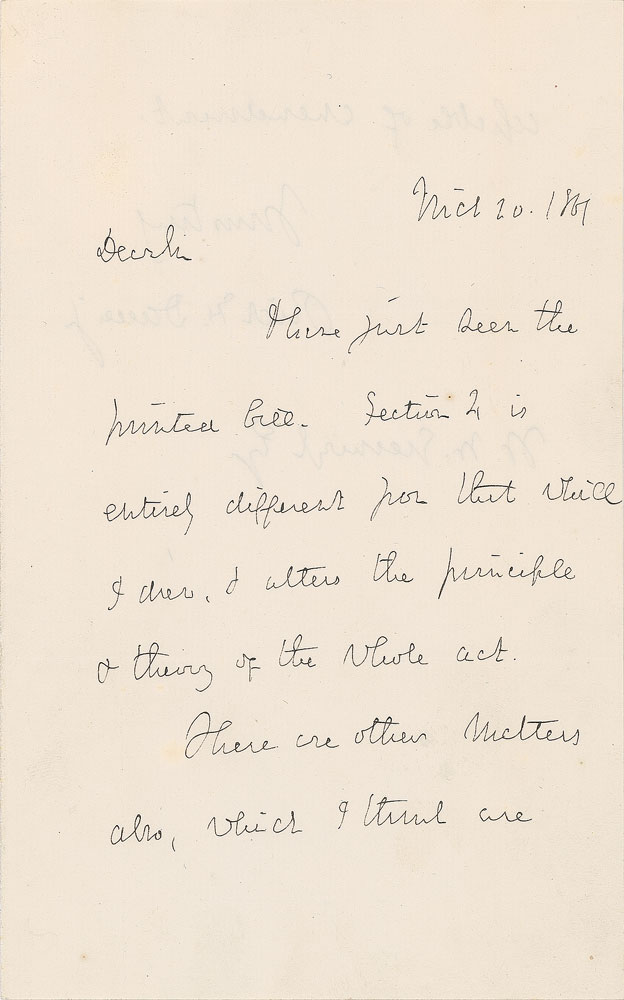 Mch 20. 1867
Dear Sir
I have just seen the
printed bill. Section 2 is
entirely different from that which
I drew, & alters the principle
& theory of the whole act.
There are other matters
also, which I think are